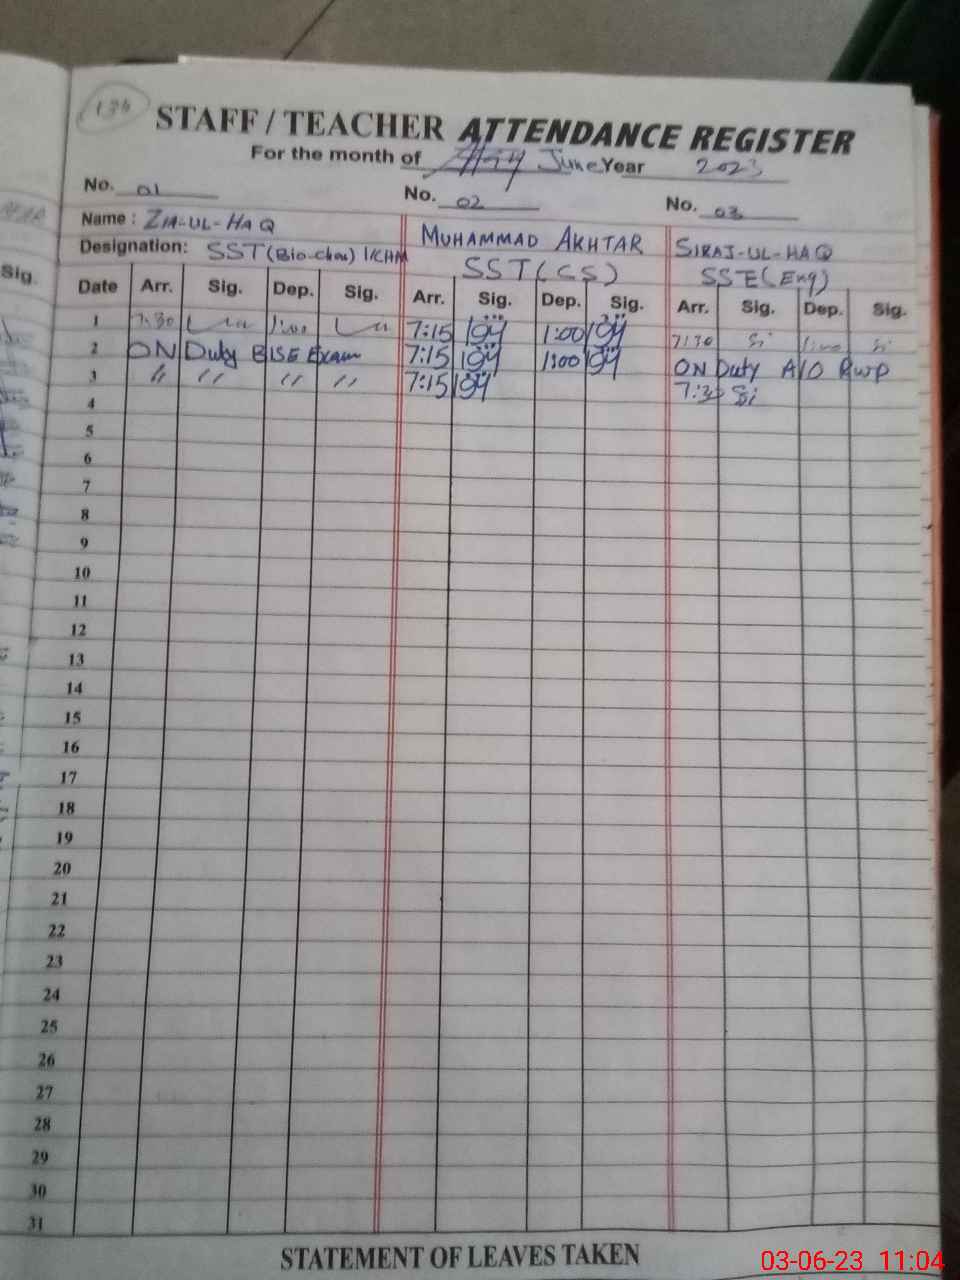 136
STAFF / TEACHER ATTENDANCE REGISTER
For the month of June Year 2023
No. 01 No. 02 No. 03
Name : ZIA-UL-HAQ MUHAMMAD AKHTAR SIRAJ-UL-HAQ
Designation: SST SST (CS) SSE (Eng)
Sig.
Date Arr. Sig. Dep. Sig. Arr. Sig. Dep. Sig. Arr. Sig. Dep. Sig.
1 7:30 1:00 7:15 1:00 7:30 Si 1:00 Si
2 ON Duty BISE Exam 7:15 1:00 ON Duty A/O RWP
3 " " " " 7:15 7:30 Si
4
5
6
7
8
9
10
11
12
13
14
15
16
17
18
19
20
21
22
23
24
25
26
27
28
29
30
31
STATEMENT OF LEAVES TAKEN
03-06-23 11:04